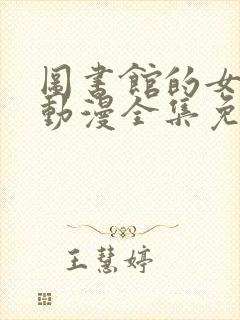 圖書館的女
動漫全集免
王慧婷